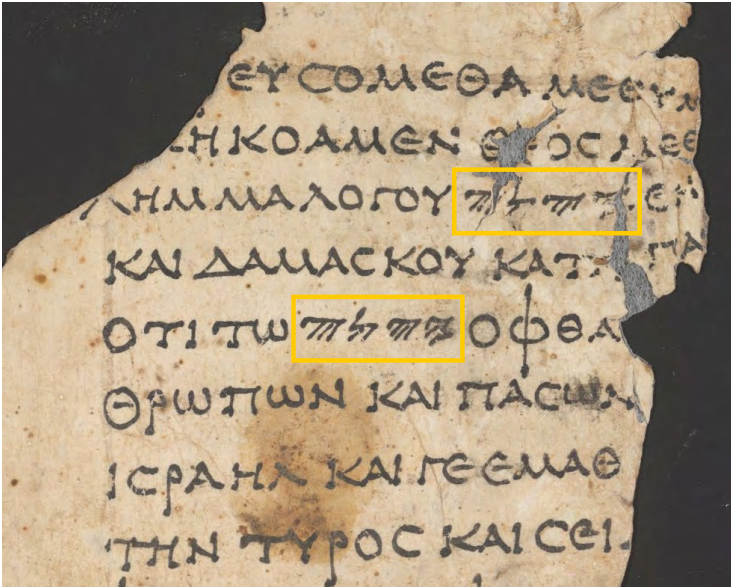 ΕΥϹΟΜΕΘΑ ΜΕΘ ΥΜ
ΚΗΚΟΑΜΕΝ ΘΕΟϹ ΜΕΘ
ΛΗΜΜΑ ΛΟΓΟΥ 𐤉𐤄𐤅𐤄 ΕΝ
ΚΑΙ ΔΑΜΑϹΚΟΥ ΚΑΤΑΠΑ
ΟΤΙ ΤΩ 𐤉𐤄𐤅𐤄 ΟΦΘΑ
ΘΡΩΠΩΝ ΚΑΙ ΠΑϹΩΝ
ΙϹΡΑΗΛ ΚΑΙ ΓΕ ΕΜΑΘ
ΤΗΝ ΤΥΡΟϹ ΚΑΙ ϹΕΙ